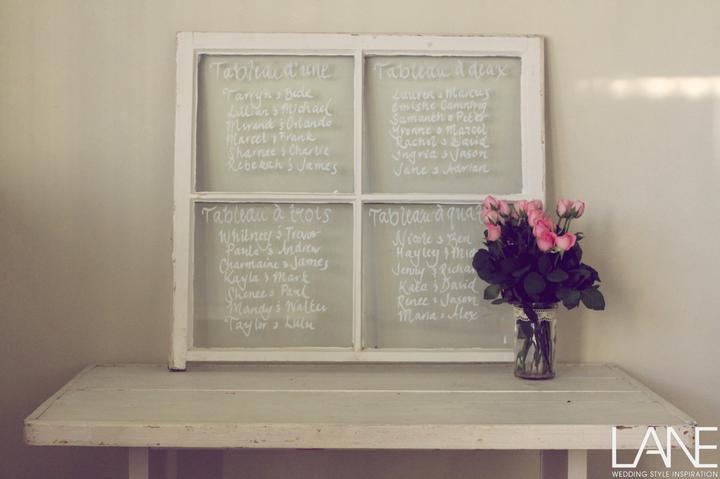 Tableau d'une
Tarryn & Bede
Lillian & Michael
Miranda & Orlando
Marcel & Frank
Sharnee & Charlie
Rebekah & James
Tableau à deux
Lauren & Marcus
Samantha & Peter
Yvonne & Marcel
Rachel & David
Ingrid & Jason
Jane & Adrian
Tableau à trois
Whitney & Trevor
Paula & Andrew
Charmaine & James
Kayla & Mark
Shenee & Paul
Mandy & Walter
Taylor & Lulu
Tableau à
Nicole & Ben
Hayley &
Jenny &
Kate & David
Renee & Jason
Maria & Alex
LANE
WEDDING STYLE INSPIRATION